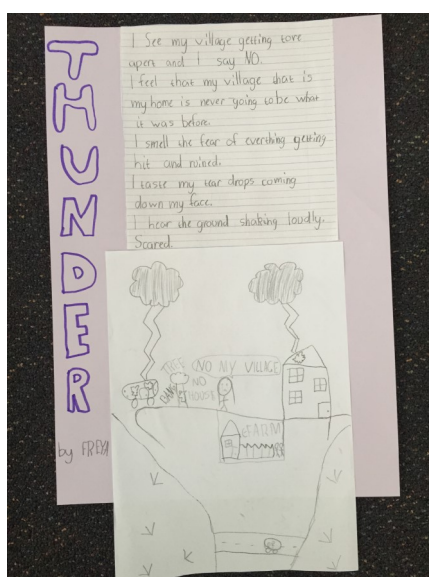 THUNDER
by FREYA
I See my village getting tore
apert and I say NO.
I feel that my village that is
my home is never going to be what
it was before.
I smell the fear of everthing getting
hit and roined.
I taste my tear drops coming
down my face.
I hear the ground shaking loudly.
Scared.
TREE
NO MY VILLAGE
NO
HOUSE
FARM